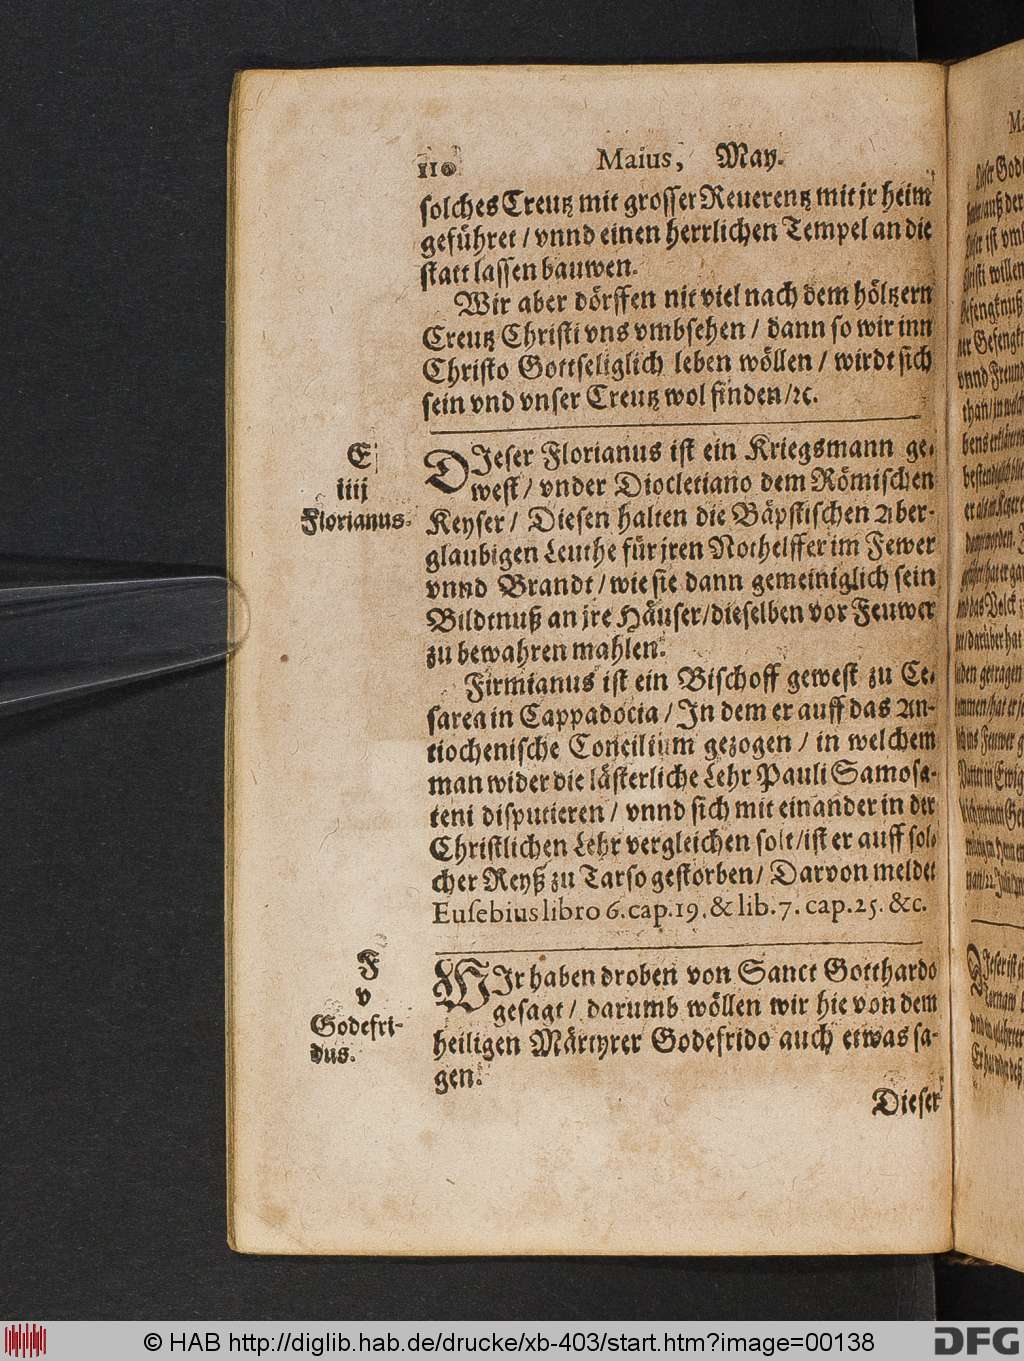 110 Maius, May.
solches Creutz mit grosser Reuerentz mit jr heim
geführet / vnnd einen herrlichen Tempel an die
statt lassen bauwen.
Wir aber dörffen nit viel nach dem höltzern
Creutz Christi vns vmbsehen / dann so wir inn
Christo Gottseliglich leben wöllen / wirdt sich
sein vnd vnser Creutz wol finden / ꝛc.
E
iiij
Florianus.
DIeser Florianus ist ein Kriegsmann ge-
west / vnder Diocletiano dem Römischen
Keyser / Diesen halten die Bäpstischen Aber-
glaubigen Leuthe für jren Nothelffer im Fewer
vnnd Brandt / wie sie dann gemeiniglich sein
Bildtnuß an jre Häuser / dieselben vor Feuwer
zu bewahren mahlen.
Firmianus ist ein Bischoff gewest zu Ce-
sarea in Cappadocia / In dem er auff das An-
tiochenische Concilium gezogen / in welchem
man wider die lästerliche Lehr Pauli Samosa-
teni disputieren / vnnd sich mit einander in der
Christlichen Lehr vergleichen solt / ist er auff sol-
cher Reyß zu Tarso gestorben / Darvon meldet
Eusebius libro 6. cap. 19. & lib. 7. cap. 25. &c.
F
v
Godefri-
dus.
WIr haben droben von Sanct Gotthardo
gesagt / darumb wöllen wir hie von dem
heiligen Märtyrer Godefrido auch etwas sa-
gen.
Dieser
© HAB http://diglib.hab.de/drucke/xb-403/start.htm?image=00138
DFG